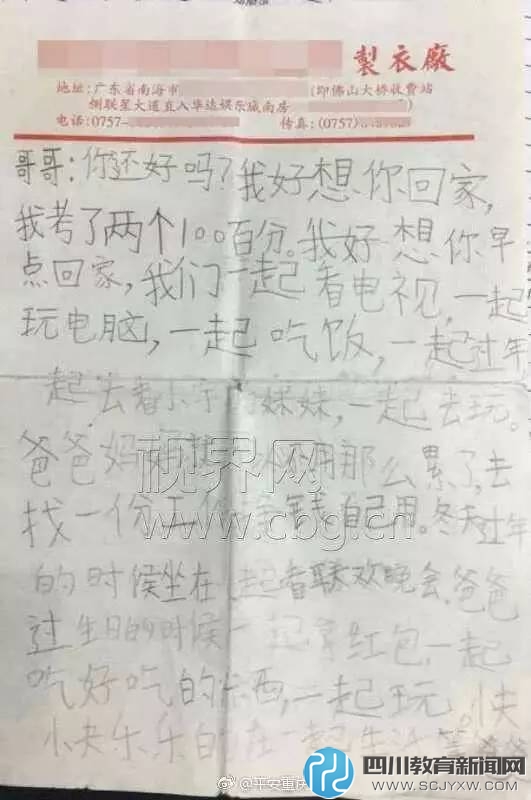 製衣廠
地址:广东省南海市 (印佛山大桥收费站
侧联星大道直入华达娱乐城南房
电话:0757- 传真:(0757)
哥哥:你还好吗?我好想你回家,
我考了两个100百分。我好想你早
点回家,我们一起看电视,一起
玩电脑,一起吃饭,一起过年
起去看小宇 妹妹,一起去玩。
爸爸妈妈 不用那么累了,去
找一份工作 钱自己用。冬天过年
的时候坐在一起看联欢晚会,爸爸
过生日的时候一起拿红包,一起
吃好吃的东西,一起玩。快
快乐乐的在一起生活
视界网
www.cbg.cn
@平安重庆
四川教育新闻网
WWW.SCJYXW.COM